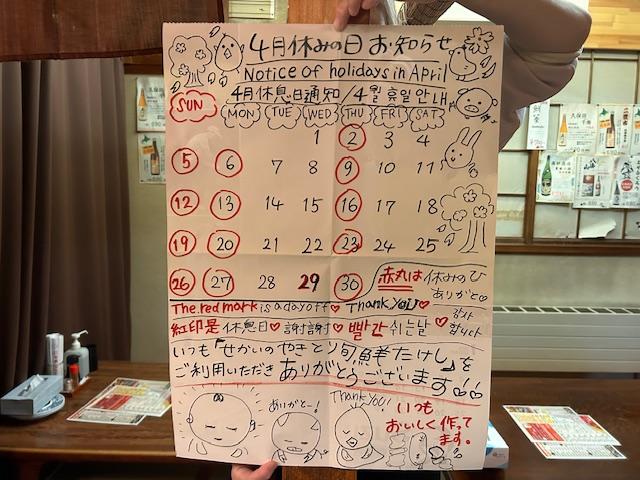 4月休みの日 お知らせ
Notice of holidays in April
4月休息日通知 / 4월 휴일 안내
SUN MON TUE WED THU FRI SAT
1 2 3 4
5 6 7 8 9 10 11
12 13 14 15 16 17 18
19 20 21 22 23 24 25
26 27 28 29 30
赤丸は休みのひ
ありがと♡
The red mark is a day off ♡ Thank you ♡
감사
합니다
紅印是休息日♡謝謝♡ 빨간 쉬는날
いつも「せかいのやきとり旬鮮たけし」を
ご利用いただきありがとうございます!!
ありがとー!
Thank YOU!
いつも
おいしく作って
ます。